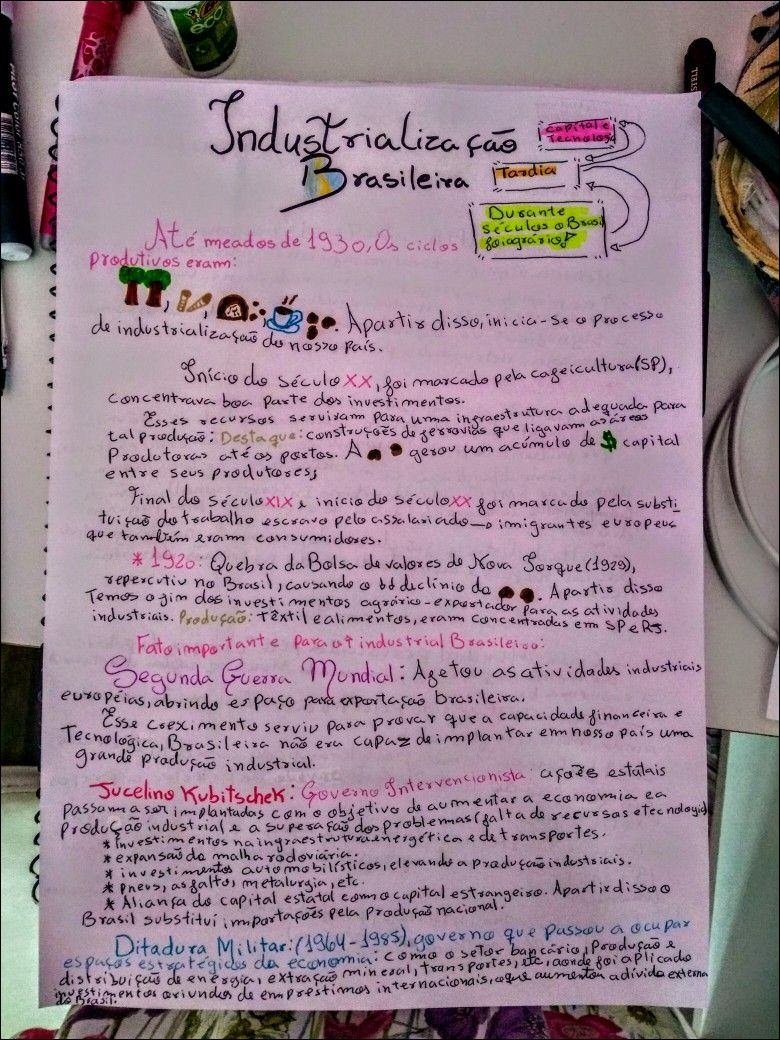 Industrialização
Brasileira
Capital e
Tecnologia
Tardia
Durante
séculos o Brasil
foi agrário!
Até meados de 1930, Os ciclos
produtivos eram:
, , , . Apartir disso, inicia-se o processo
de industrialização do nosso país.
Início do século XX, foi marcado pela cafeicultura (SP),
concentrava boa parte dos investimentos.
Esses recursos serviram para uma infraestrutura adequada para
tal produção: Destaque: construções de ferrovias que ligavam as áreas
Produtoras até os portos. A gerou um acúmulo de $ capital
entre seus produtores;
Final do século XIX e início do século XX foi marcado pela substi-
tuição do trabalho escravo pelo assalariado → imigrantes europeus
que também eram consumidores.
* 1920: Quebra da Bolsa de valores de Nova Iorque (1929),
repercutiu no Brasil, causando o declínio do . Apartir disso
Temos o fim dos investimentos agrário-exportador para as atividades
industriais. Produção: têxtil e alimentos, eram concentradas em SP e RJ.
Fato importante para o ↑ industrial Brasileiro:
Segunda Guerra Mundial: Afetou as atividades industriais
européias, abrindo espaço para exportação brasileira.
Esse creximento serviu para provar que a capacidade financeira e
Tecnológica, Brasileira não era capaz de implantar em nosso país uma
grande produção industrial.
Jucelino Kubitschek: Governo Intervencionista: ações estatais
passam a ser implantadas com o objetivo de aumentar a economia e a
produção industrial e a superação dos problemas (falta de recursos e tecnologia)
* Investimentos na infraestrutura energética e de transportes.
* expansão da malha rodoviária.
* investimentos automobilísticos, elevando a produção industriais.
* pneus, asfalto, metalurgia, etc.
* Aliança do capital estatal com o capital estrangeiro. Apartir disso o
Brasil substituí importações pela produção nacional.
Ditadura Militar: (1964-1985), governo que passou a ocupar
espaços estratégicos da economia: como o setor bancário, Produção e
distribuição de energia, extração mineral, transportes, etc, aonde foi aplicado
investimentos oriundos de emprestimos internacionais, o que aumentou a dívida externa
do Brasil.